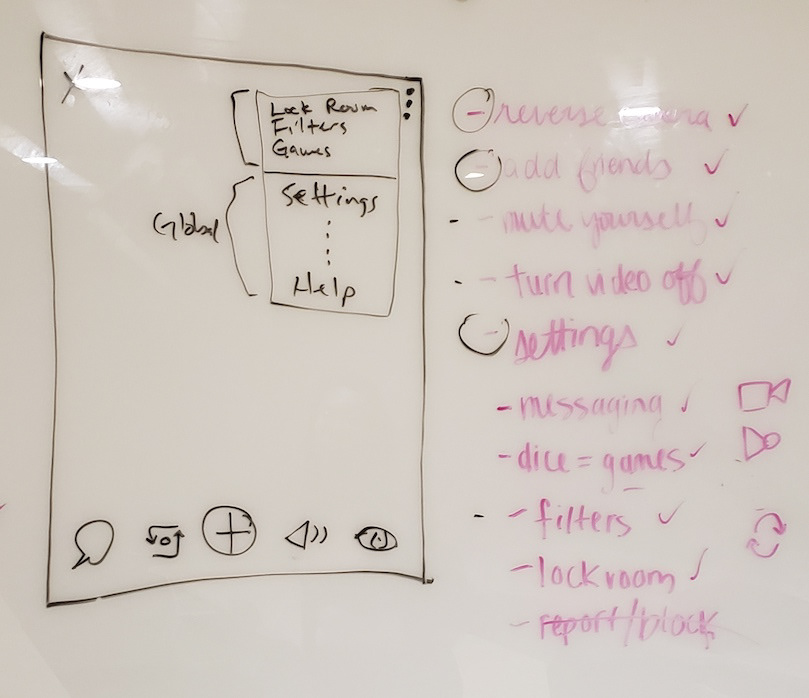 Lock Room
Filters
Games
Settings
Help
Global
- reverse
- add friends ✓
- mute yourself ✓
- turn video off ✓
- settings ✓
- messaging ✓
- dice = games ✓
- filters ✓
- lock room ✓
- report/block